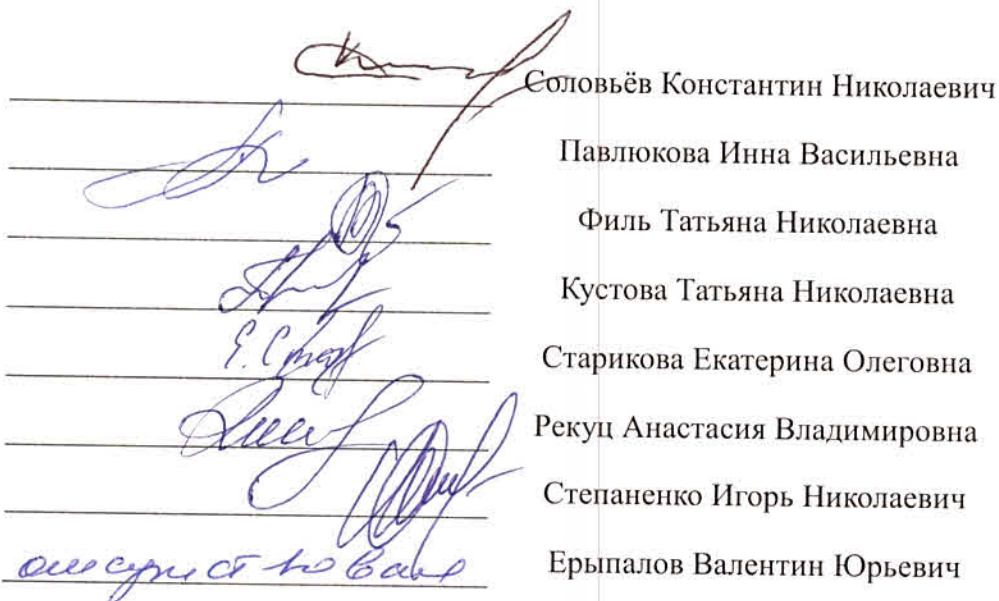 Соловьёв Константин Николаевич
Павлюкова Инна Васильевна
Филь Татьяна Николаевна
Кустова Татьяна Николаевна
Е. Стар Старикова Екатерина Олеговна
Рекуц Анастасия Владимировна
Степаненко Игорь Николаевич
отсутствовал Ерыпалов Валентин Юрьевич